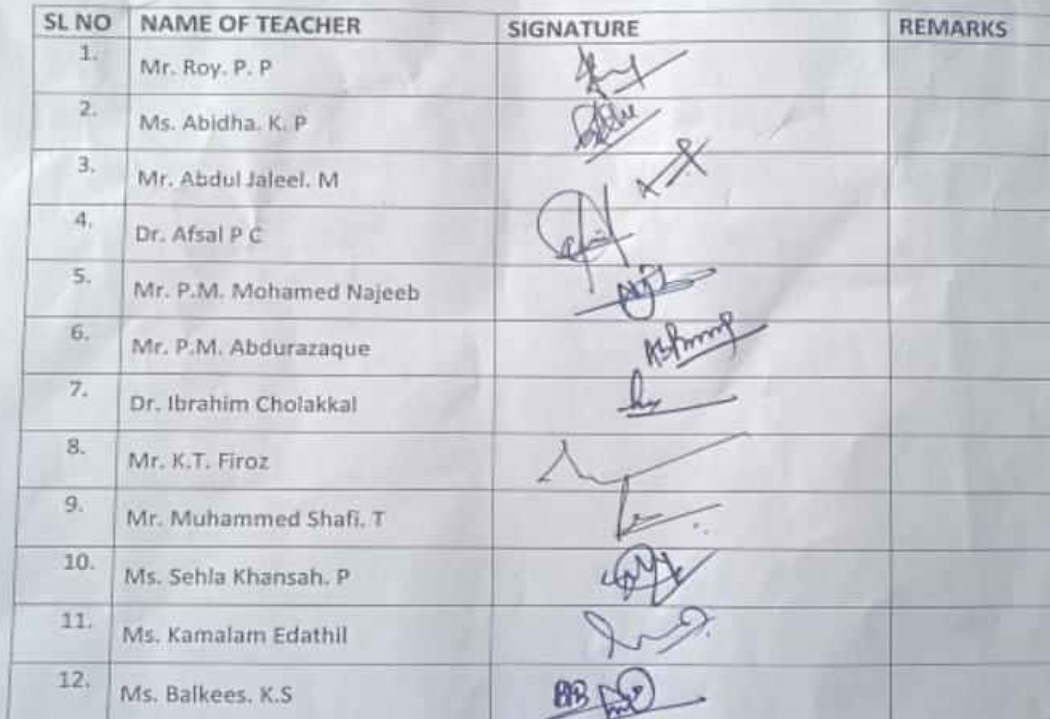 SL NO NAME OF TEACHER SIGNATURE REMARKS
1. Mr. Roy. P. P
2. Ms. Abidha. K. P
3. Mr. Abdul Jaleel. M
4. Dr. Afsal P C
5. Mr. P.M. Mohamed Najeeb
6. Mr. P.M. Abdurazaque
7. Dr. Ibrahim Cholakkal
8. Mr. K.T. Firoz
9. Mr. Muhammed Shafi. T
10. Ms. Sehla Khansah. P
11. Ms. Kamalam Edathil
12. Ms. Balkees. K.S